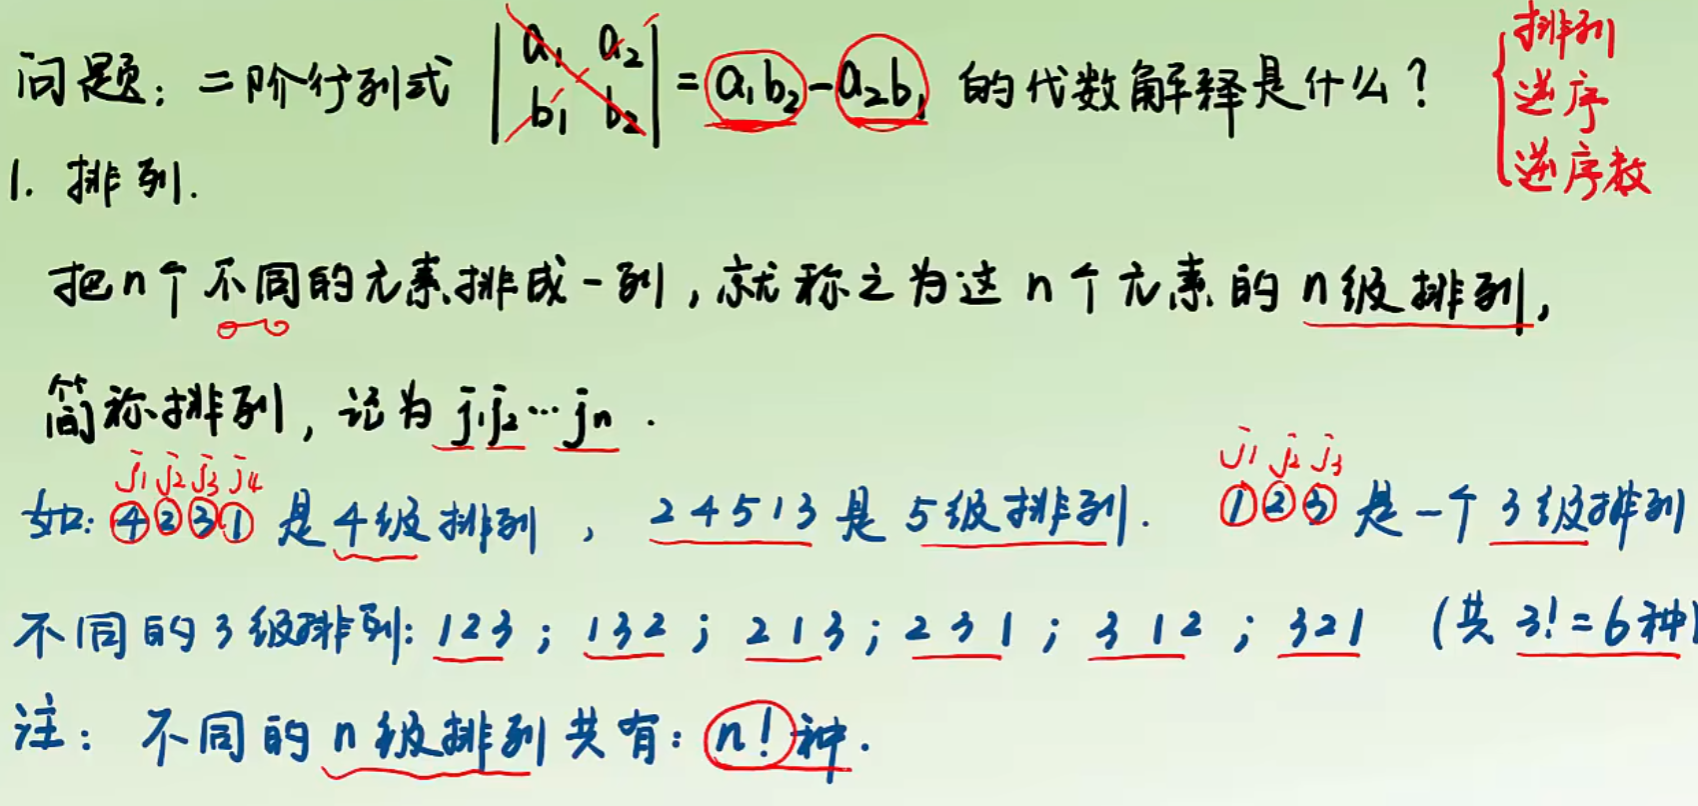 问题：二阶行列式 |a₁ a₂ b₁ b₂| = a₁b₂ - a₂b₁ 的代数解释是什么？
排列
逆序
逆序数
1. 排列.
把n个不同的元素排成一列，就称之为这n个元素的n级排列，
简称排列，记为 j₁j₂…jn .
j₁ j₂ j₃ j₄
j₁ j₂ j₃
如: ④②③① 是4级排列 ， 24513是5级排列. ①②③ 是一个3级排列
不同的3级排列: 123 ; 132 ; 213 ; 231 ; 312 ; 321 (共3!=6种)
注：不同的n级排列共有: n!种.